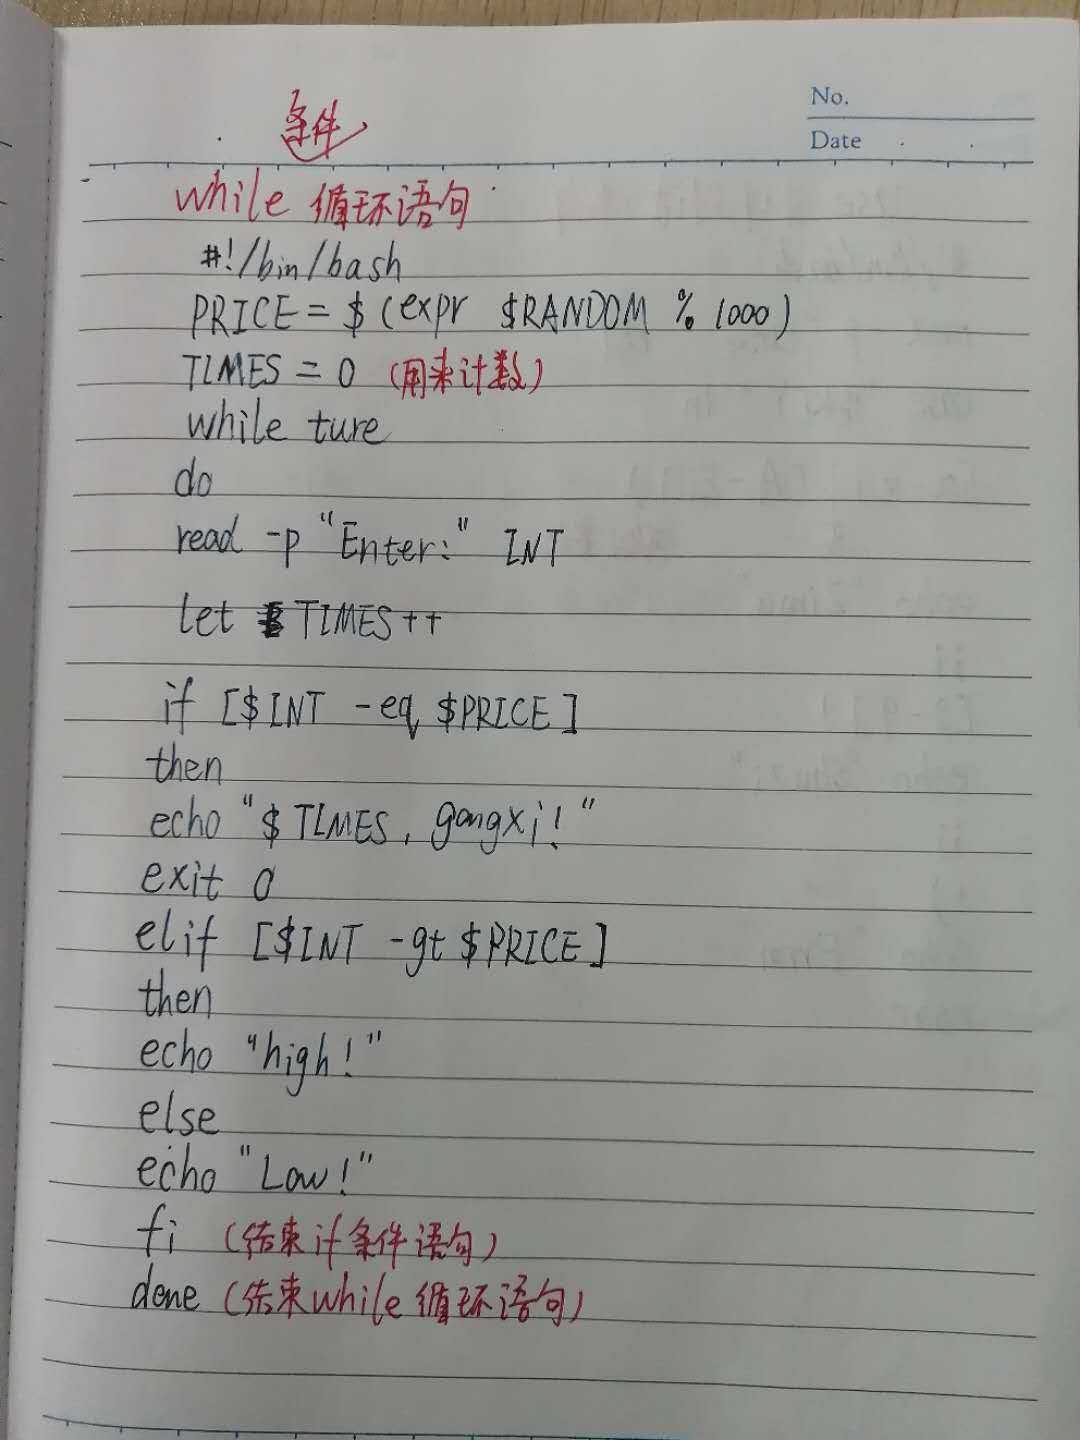 No.
Date
条件
while 循环语句
#!/bin/bash
PRICE = $(expr $RANDOM % 1000)
TIMES = 0 (用来计数)
while ture
do
read -p "Enter:" INT
let TIMES++
if [$INT -eq $PRICE]
then
echo "$TIMES, gongxi!"
exit 0
elif [$INT -gt $PRICE]
then
echo "high!"
else
echo "Low!"
fi (结束if条件语句)
done (结束while循环语句)